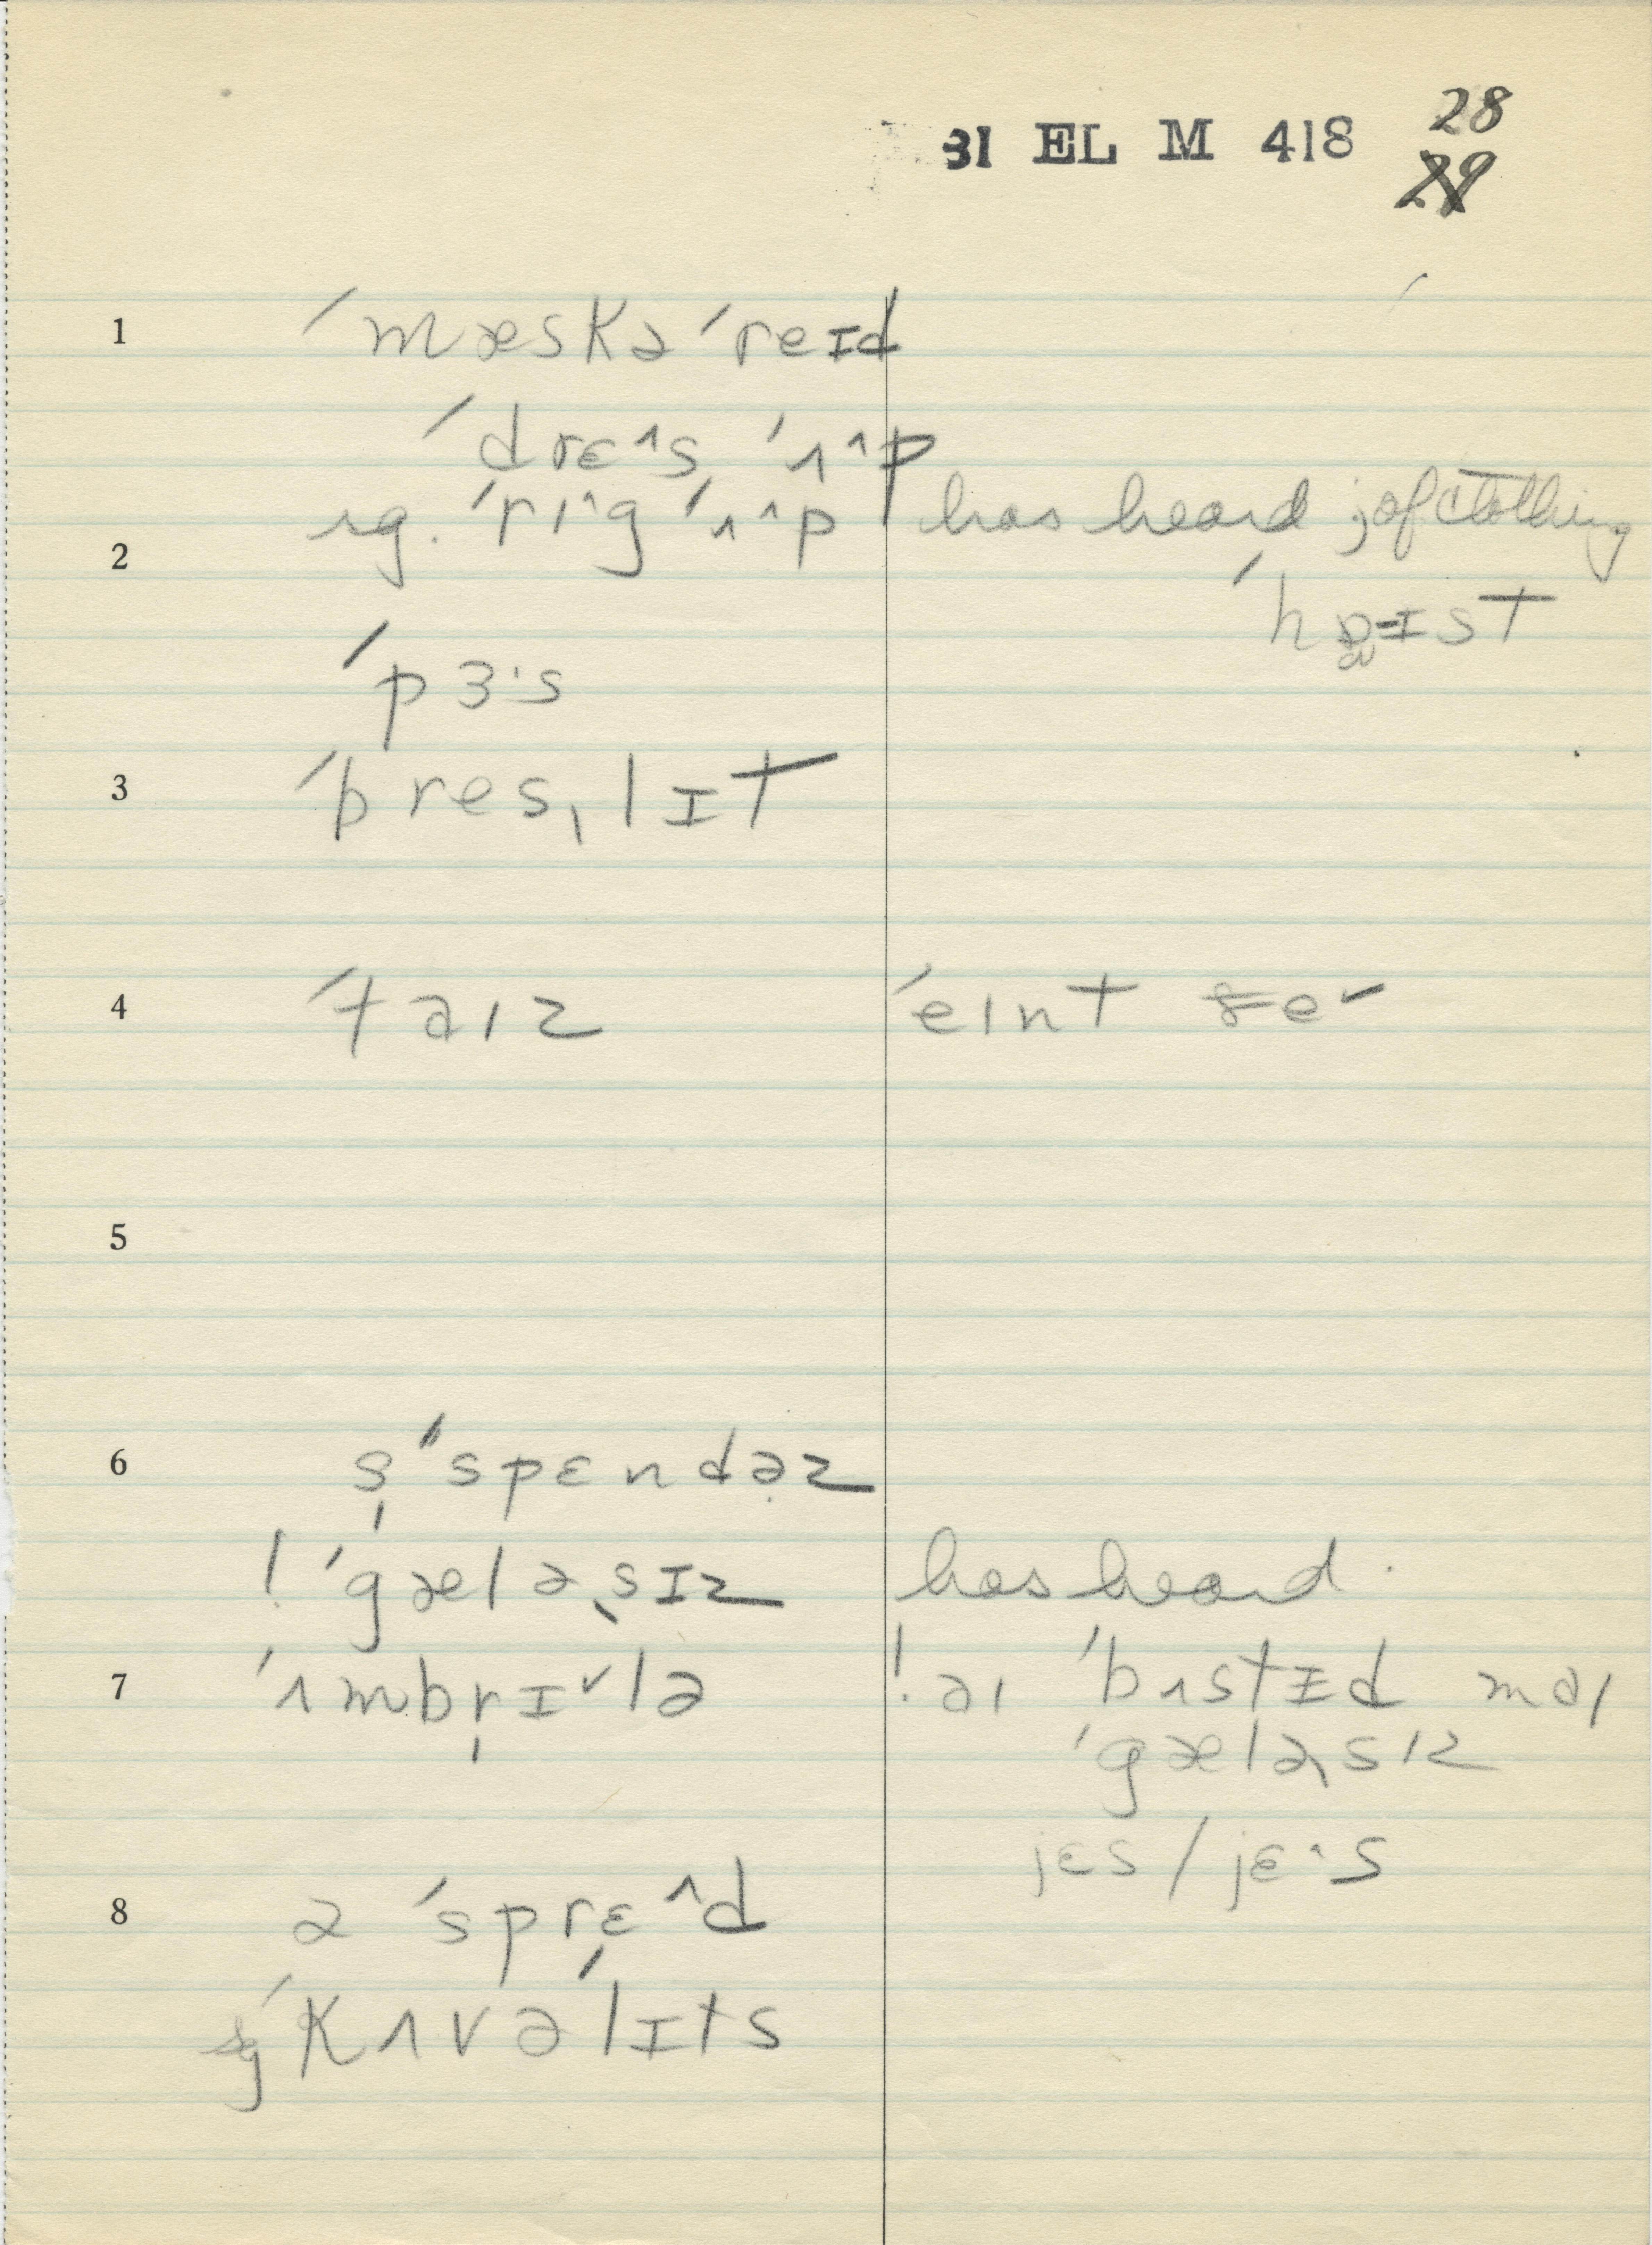 31 EL M 418 28
29
1 ˈmæskəˈreɪd
ˈdrɛ^s ˈʌ^p
sg. ˈrɪ^g ˈʌ^p has heard ; of clothing
2
ˈhɒɪst
ˈpɜ·s
3 ˈbresˌlɪt
4 ˈtaɪz ˈeɪnt
5
6 s̩ˈspɛndəz
! ˈgæləˌsɪz has heard
7 ˈʌmbrɪ˅lə ! aɪ ˈbʌstɪd maɪ
ˈgæləˌsɪz
jɛs / jɛ·^s
8 ə ˈsprɛ^d
ˈkʌvəˈlɪts